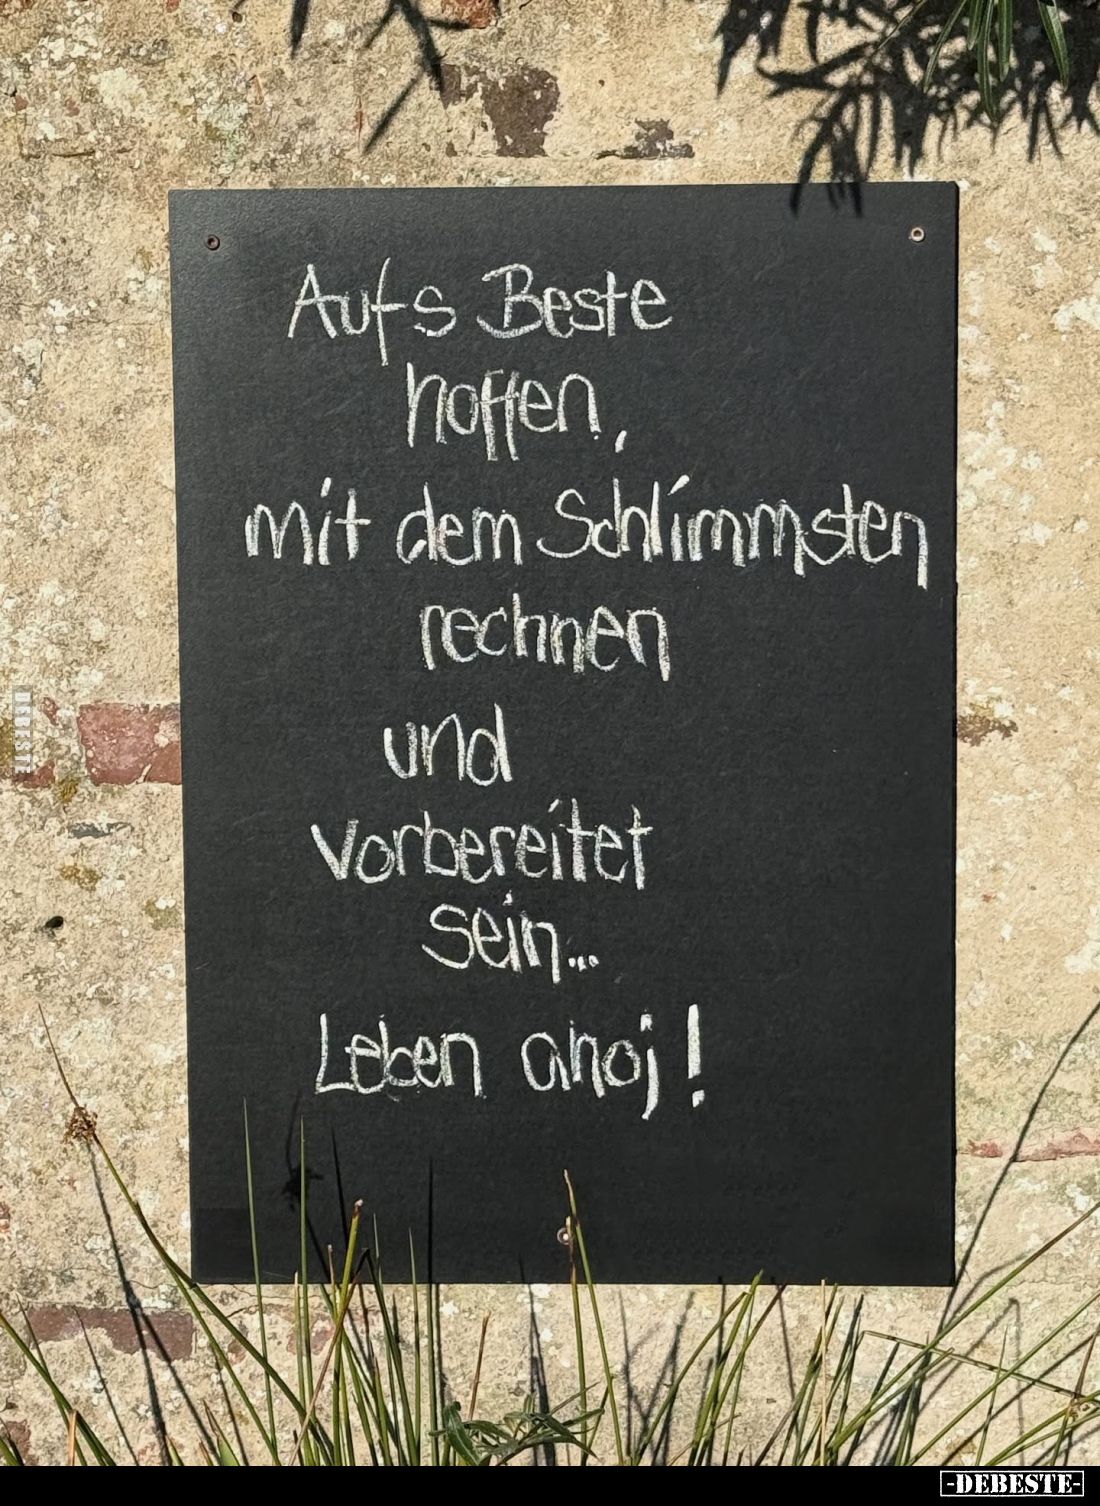 Aufs Beste
hoffen,
mit dem Schlimmsten
rechnen
und
vorbereitet
sein...
Leben ahoj!
DEBESTE
-DEBESTE-